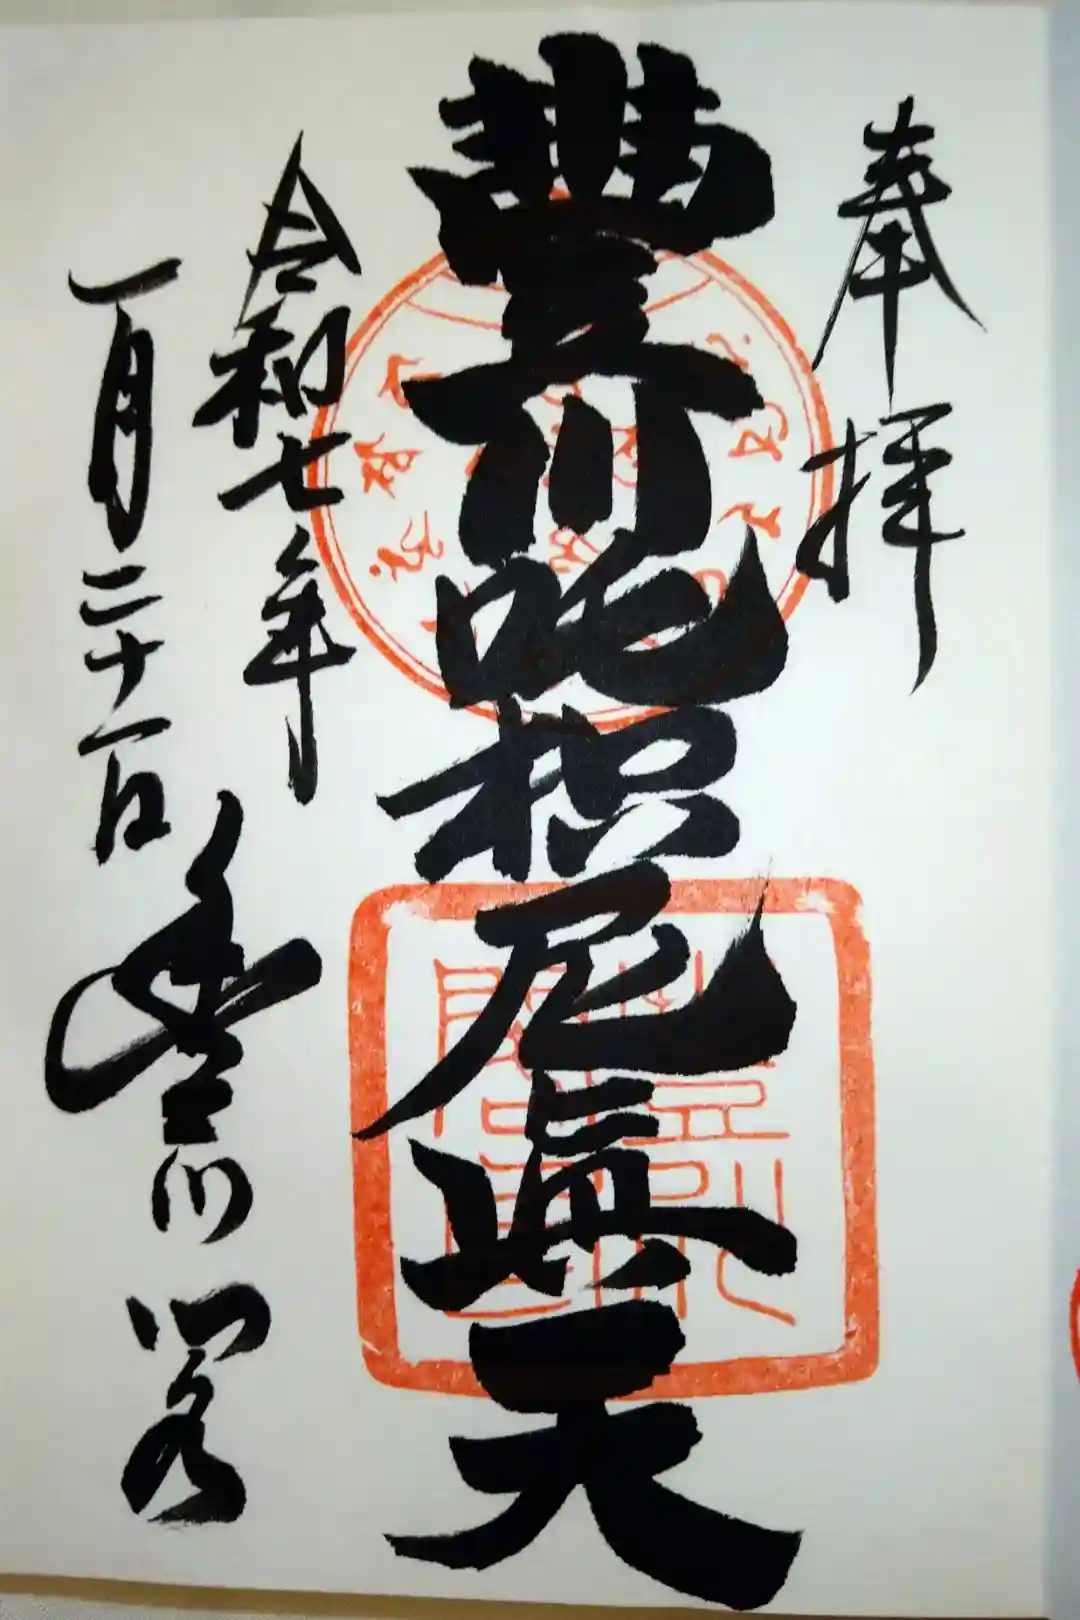 奉拝
豐川吒枳尼眞天
令和七年
一月二十一日
豊川閣